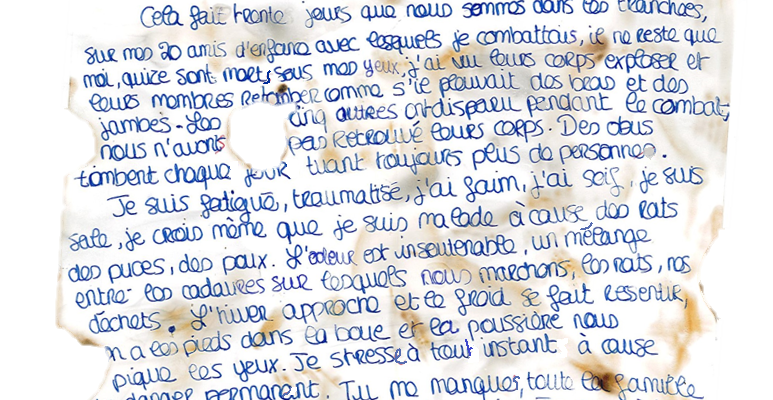 Cela fait trente jours que nous sommes dans les tranchées,
sur mes 20 amis d'enfance avec lesquels je combattais, il ne reste que
moi, quize sont morts sous mes yeux, j'ai vu leurs corps exploser et
leurs membres retomber comme s'il pleuvait des bras et des
jambes. Les cinq autres ont disparu pendant le combat,
nous n'avons pas retrouvé leurs corps. Des obus
tombent chaque jour tuant toujours plus de personnes.
Je suis fatigué, traumatisé, j'ai faim, j'ai soif, je suis
sale, je crois même que je suis malade à cause des rats
des puces, des poux. L'odeur est insoutenable, un mélange
entre les cadavres sur lesquels nous marchons, les rats, nos
déchets. L'hiver approche et le froid se fait ressentir,
n a les pieds dans la boue et la poussière nous
pique les yeux. Je stresse à tout instant à cause
danger permanent. Tu me manques, toute la famille